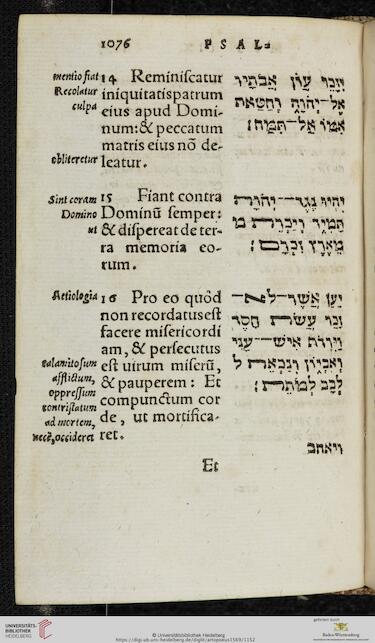 1076 PSAL=
mentio fiat
Recolatur
culpa
obliteretur
14 Reminiscatur
iniquitatis patrum
eius apud Domi-
num: & peccatum
matris eius nõ de-
leatur.
יִזָּכֵר עֲוֺן אֲבֹתָיו
אֶל־יְהֹוָה וְחַטַּאת
אִמּוֹ אַל־תִּמָּח׃
Sint coram
Domino
ut
15 Fiant contra
Dominũ semper:
& dispereat de ter-
ra memoria eo-
rum.
יִהְיוּ נֶגֶד־יְהֹוָה
תָּמִיד וְיַכְרֵת מ
מֵאֶרֶץ זִכְרָם׃
Aetiologia
calamitosum
afflictum,
oppressum
contristatum
ad mortem,
necẽ, occideret
16 Pro eo quòd
non recordatus est
facere misericordi
am, & persecutus
est uirum miserũ,
& pauperem: Et
compunctum cor
de, ut mortifica-
ret.
יַעַן אֲשֶׁר־לֹא
זָכַר עֲשׂוֹת חָסֶד
וַיִּרְדֹּף אִישׁ־עָנִי
וְאֶבְיוֹן וְנִכְאֵה ל
לֵבָב לְמוֹתֵת׃
ויאהב
Et
UNIVERSITÄTS-
BIBLIOTHEK
HEIDELBERG
© Universitätsbibliothek Heidelberg
https://digi.ub.uni-heidelberg.de/diglit/artopoeus1569/1152
gefördert durch
Baden-Württemberg